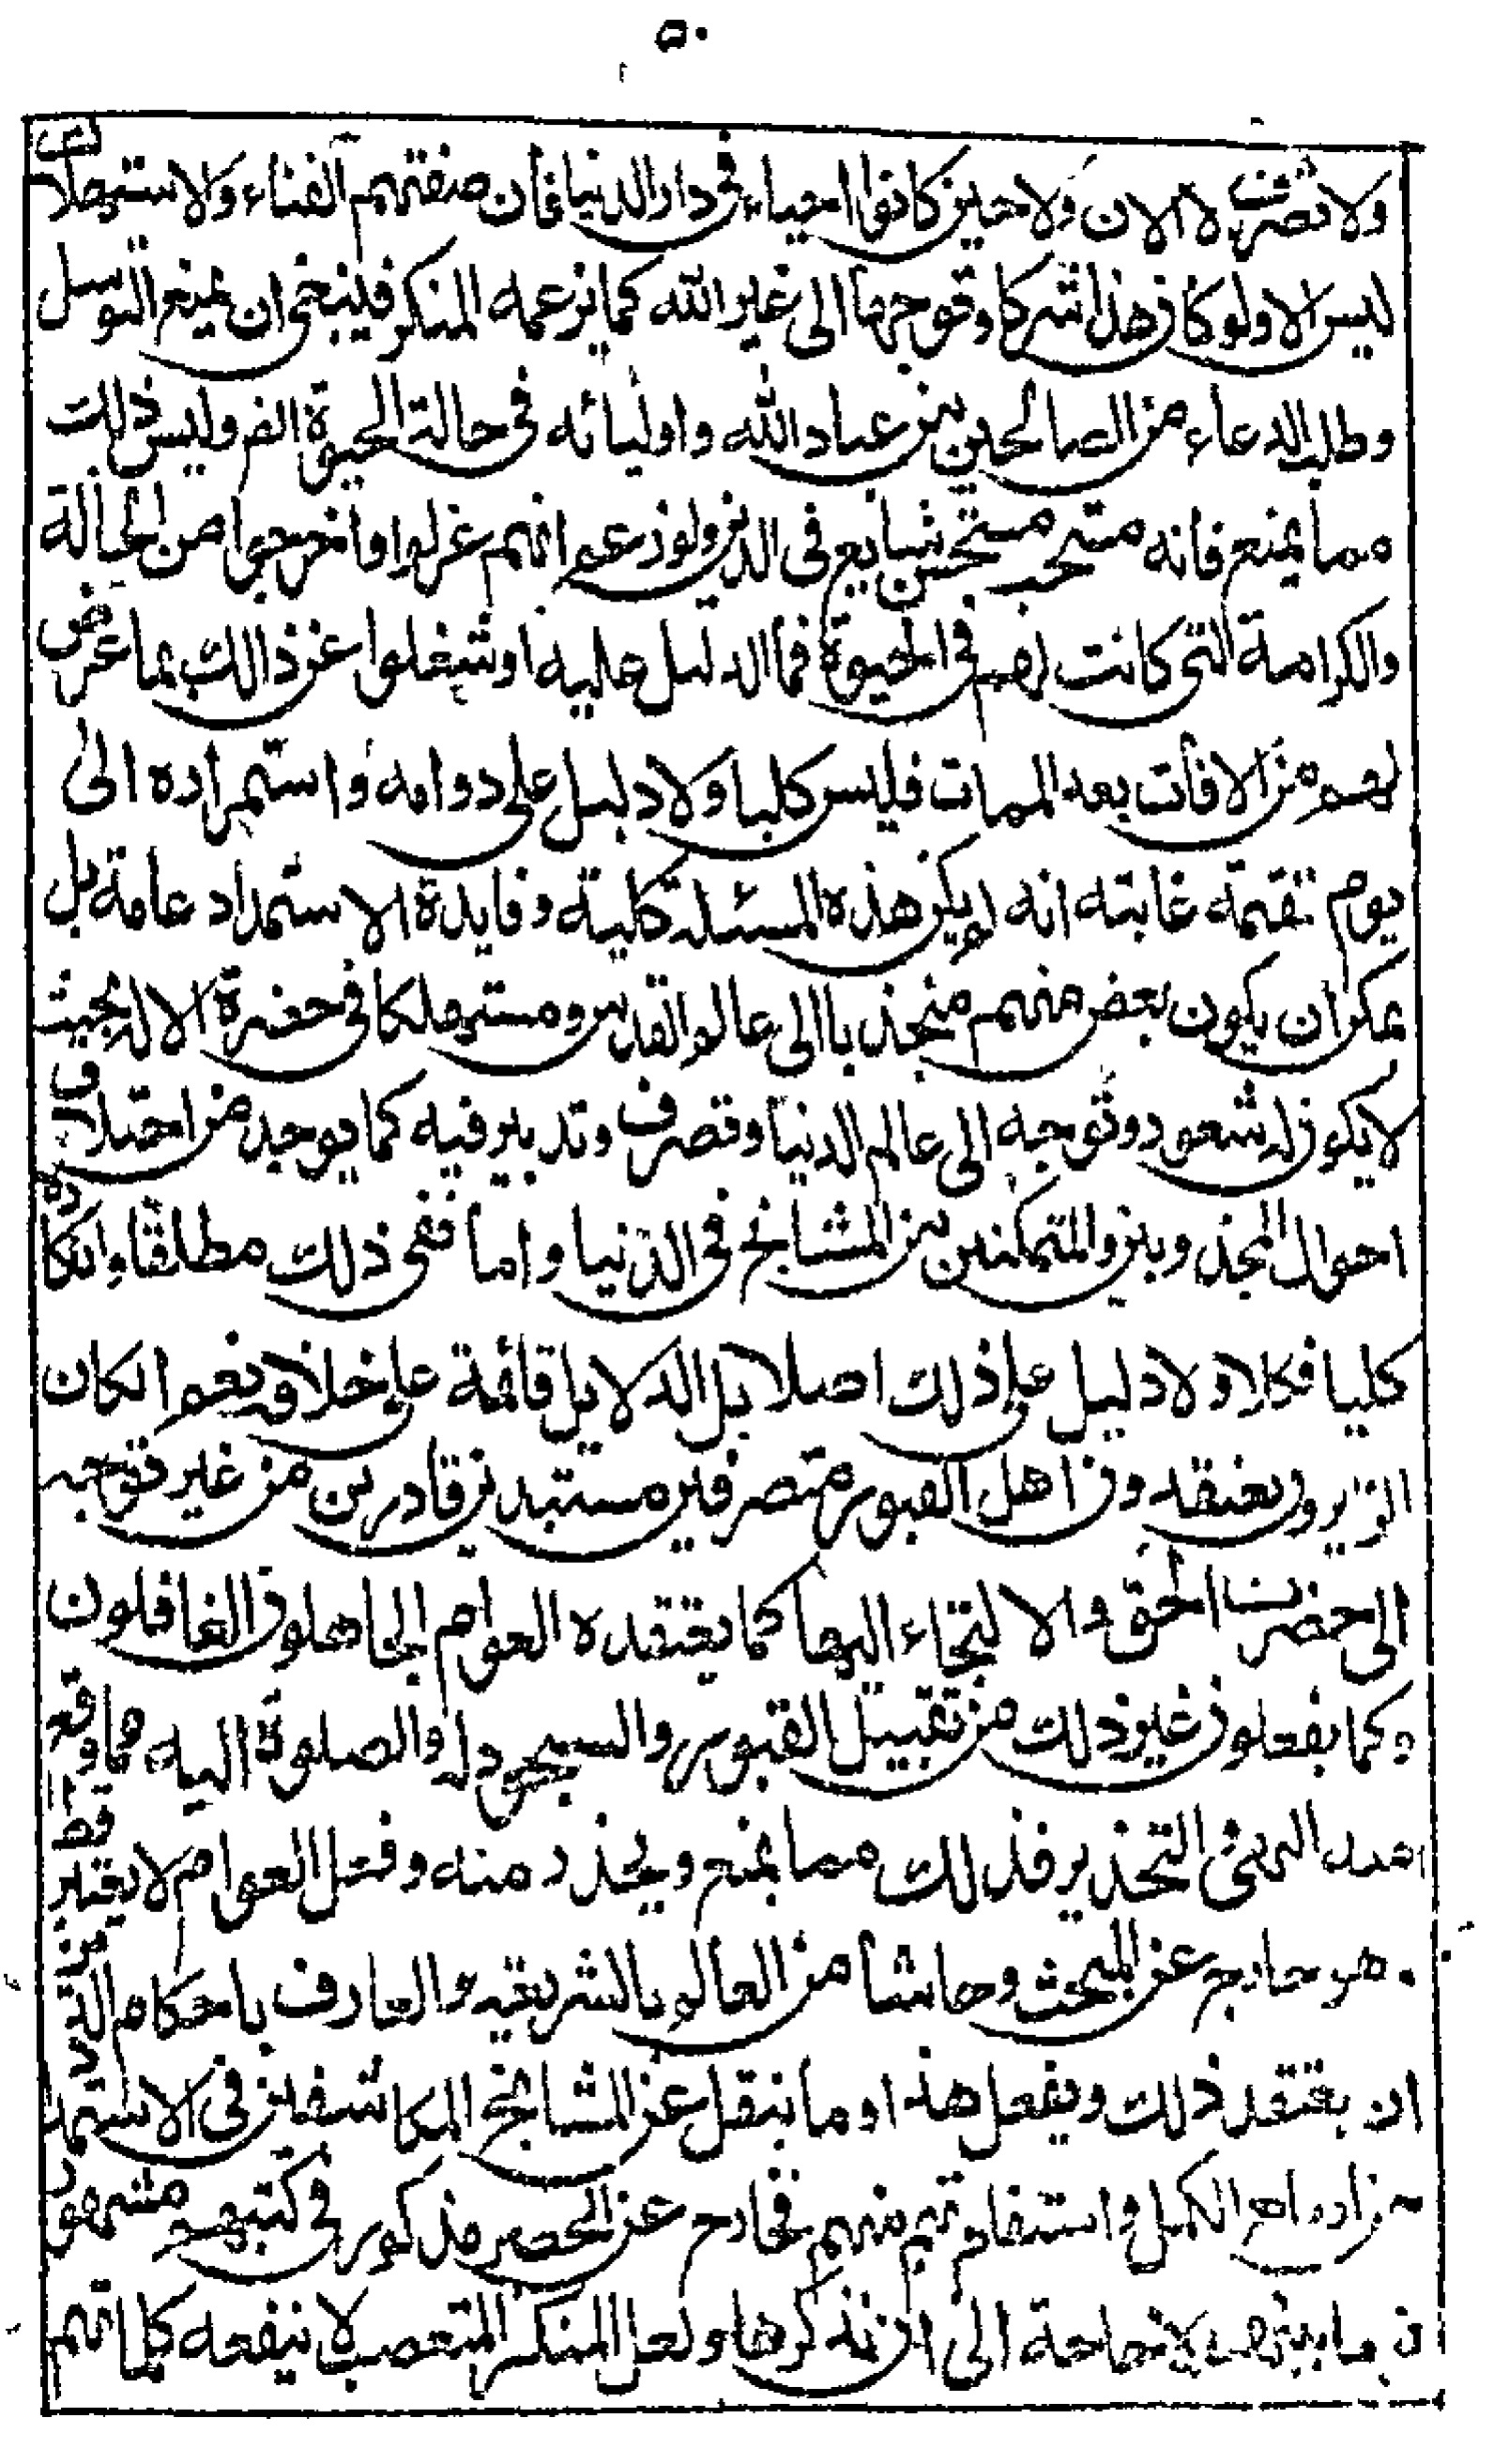 ٥٠
ولا تصرف لا الان ولا حين كانوا احياء في دار الدنيا فان صفتهم الفناء والاستهلاك
ليس الا ولو كان هذا شركا وتوجها الى غير الله كما يزعمه المنكر فينبغي ان يمنع التوسل
وطلب الدعاء من الصالحين من عباد الله واوليائه في حالة الحيوة الضم وليس ذلك
مما يمنع فانه مستحب مستحسن شايع في الدين ولو زعم انهم عزلوا واخرجوا من الحالة
والكرامة التي كانت لهم في الحيوة فما الدليل عليه او شغلوا عن ذالك بما عرض
لهم من الافات بعد الممات فليس كليا ولا دليل على دوامه واستمراده الى
يوم تقيمة غايته انه لم يكن هذه المسئلة كلية وفايدة الاستمداد عامة بل
يمكن ان يكون بعض منهم منجذبا الى عالم القدس ومستهلكا في حضرة الاله بحيث
لا يكون له شعور وتوجه الى عالم الدنيا وتصرف وتدبير فيه كما يوجد من اختلاف
احوال المجذوبين والمتمكنين من المشايخ في الدنيا واما نفي ذلك مطلقا وانكاره
كليا فكلا ولا دليل على ذلك اصلا بل الدلايل قائمة على خلافه نعم ان كان
الزايرون يعتقدون اهل القبور متصرفين مستبدين قادرين من غير توجه
الى حضرت الحق والالتجاء اليها كما يعتقده العوام الجاهلون الغافلون
وكما يفعلون غير ذلك من تقبيل القبور والسجود له والصلوة اليه مما وقع
النهي والتحذير فذلك مما يمنع ويحذر منه وفعل العوام لا يعتبر قط
هو خارج عن المبحث وحاشا من العالم بالشريعه والعارف باحكام الدين
ان يعتقد ذلك ويفعل هذا وما ينقل عن المشايخ المكاشفين في الاستمداد
الكمل واستفادتهم منهم فخارج عن الحصر مذكور في كتبهم مشهور
بينهم لا حاجة الى ان نذكرها ولعل المنكر المتعصب لا ينفعه كلماتهم